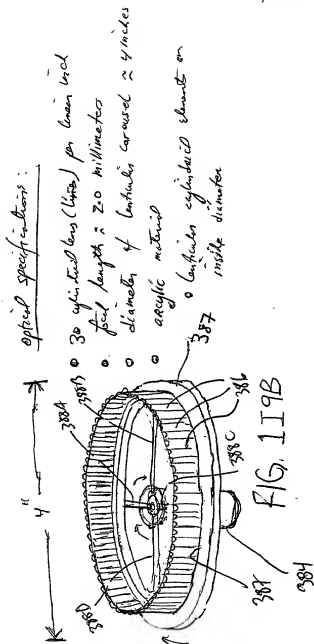 optical specifications:
• 30 cylindrical lens (lines) per linear inch
• focal length ≈ 200 millimeters
• diameter of lenticular carousel ≈ 4 inches
• acrylic material
• lenticular cylindrical elements on
inside diameter
4"
388D
388A
388B
387
386
388C
387
384
FIG. 1I9B